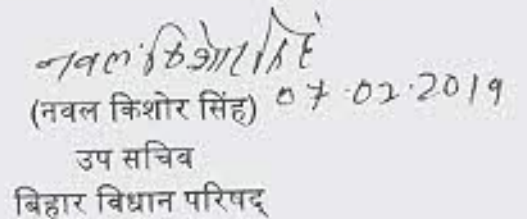 नवल किशोर सिंह
(नवल किशोर सिंह) 07.02.2019
उप सचिव
बिहार विधान परिषद्